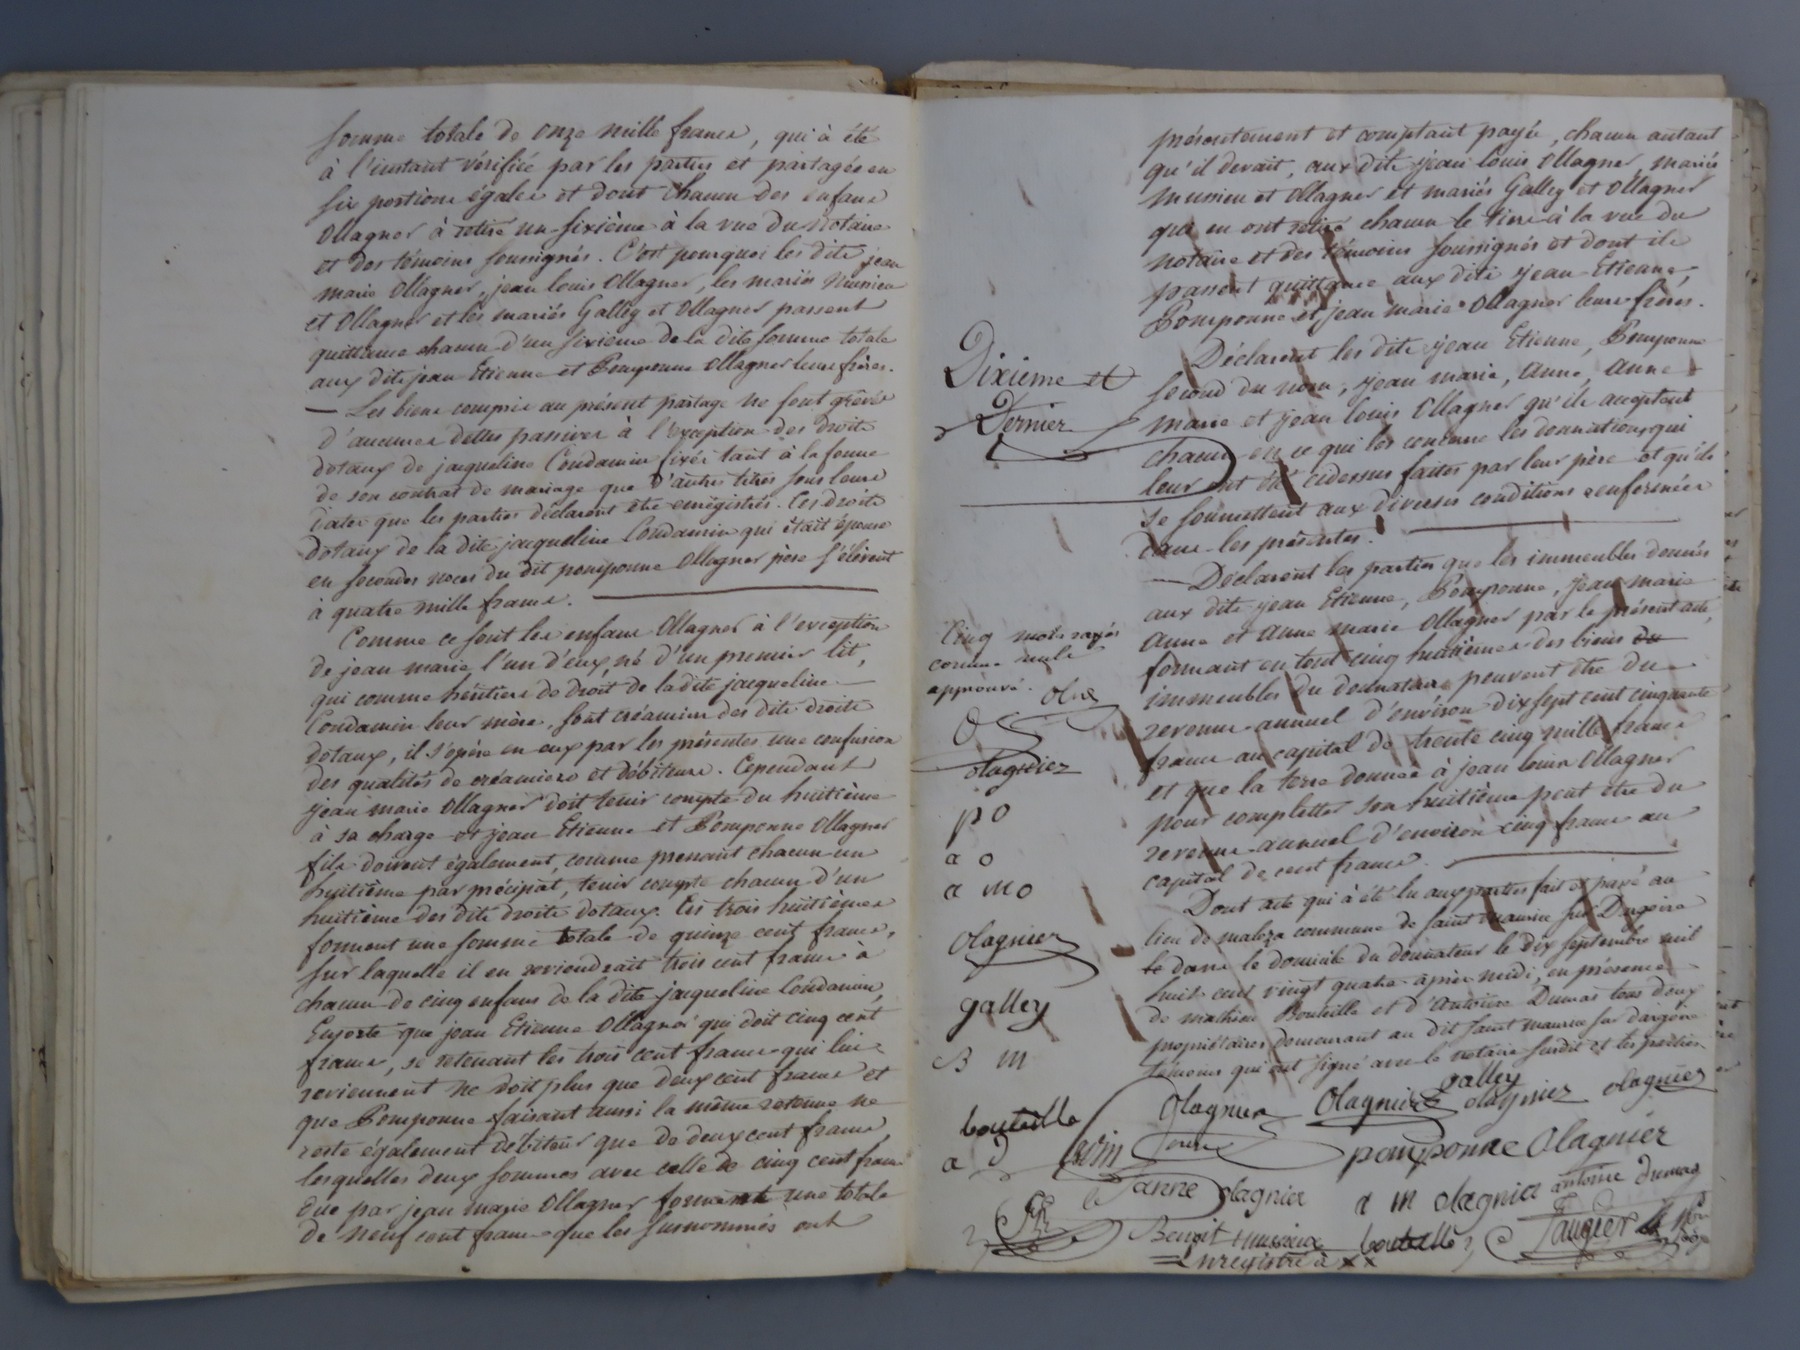 somme totale de onze mille francs, qui à été
à l'instant vérifiée par les parties et partagée en
six portions égales et dont chacun des enfans
Ollagner à retiré un sixième à la vue du Notaire
et des témoins soussignés. C'est pourquoi les dits jean
marie Ollagner, jean louis Ollagner, les mariés Mussieu
et Ollagner et les mariés Galley et Ollagner passent
quittance chacun d'un sixième de la dite somme totale
aux dits jean Etienne et Pomponne Ollagner leurs frères.
— Les biens compris au présent partage ne sont grévés
d'aucunes dettes passives à l'exception des droits
dotaux de jaqueline Condamin fixés tant à la forme
de son contrat de mariage que d'autres titres sous leurs
dates que les parties déclarent être enrégistrés. Ces droits
dotaux de la dite jacqueline Condamin qui était épouse
en secondes noces du dit pomponne Ollagner père s'élèvent
à quatre mille francs.
Comme ce sont les enfans Ollagner à l'exception
de jean marie l'un d'eux, né d'un premier lit,
qui comme héritiers de Droit de la dite jacqueline
Condamin leur mère, sont créamiers des dits droits
dotaux, il s'opère en eux par les présentes une confusion
des qualités de créamiers et débiteurs. Cependant
jean marie Ollagner doit tenir compte du huitième
à sa charge et jean Etienne et Pomponne Ollagner
fils doivent également, comme prenant chacun un
huitième par précipût, tenir compte chacun d'un
huitième des dits droits dotaux. Ces trois huitièmes
forment une somme totale de quinze cent francs,
sur laquelle il en reviendrait trois cent francs à
chacun de cinq enfans de la dite jacqueline Condamin,
Ensorte que jean Etienne Ollagner qui doit cinq cent
francs, se retenant les trois cent francs qui lui
reviennent ne doit plus que deux cent francs et
que Pomponne faisant aussi la même retenue ne
reste également débiteur que de deux cent francs,
lesquelles deux sommes avec celle de cinq cent francs
due par jean marie Ollagner formant une totale
de neuf cent francs que les surnommés ont
présentement et comptant payée, chacun autant
qu'il devait, aux dits jean louis Ollagner, mariés
mussieu et Ollagner et mariés Galley et Ollagner
qui en ont retiré chacun le tiers à la vue du
notaire et des témoins soussignés et dont ils
passent quittance aux dits jean Etienne,
Pomponne et jean marie Ollagner leurs frères.
Dixième et
Dernier
Déclarent les dits jean Etienne, Pomponne
second du nom, jean marie, Anne, Anne
marie et jean louis Ollagner qu'ils acceptent
chacun en ce qui les concerne les donnations qui
leur ont été cidessus faites par leur père et qu'ils
se soumettent aux diverses conditions renfermées
dans les présentes.
— Déclarent les parties que les immeubles donnés
aux dits jean Etienne, Pomponne, jean marie
Anne et Anne marie Ollagner par le présent acte,
formant en tout cinq huitièmes des biens du
immeubles du donnateur peuvent être du
revenu annuel d'environ dix sept cent cinquante
francs au capital de trente cinq mille francs
et que la terre donnée à jean louis Ollagner
pour completter son huitième peut être du
revenu annuel d'environ cinq francs au
capital de cent francs.
Dont acte qui à été lu aux parties fait et passé au
lieu de maleza commune de saint maurice sur Dargoire
le dans le domicile du donnateur le dix septembre mil
huit cent vingt quatre après midi, en présence
de mathieu Bouteille et d'Antoine Dumas tous deux
propriétaires demeurant au dit saint maurice sur dargoire
témoins qui ont signé avec le notaire susdit et les parties.
Cinq mots rayés
comme nuls
approuvé.
olagniez
p o
a o
a m o
Olagnier
galley
B m
bouteille
a d
Olagnier
Olagnier
galley
olagniez
olagniez
pomponne Olagnier
anne olagnier
a m olagnier
antoine dumas
Benoit mussieux
bouteille
Faugier
Enregistré à